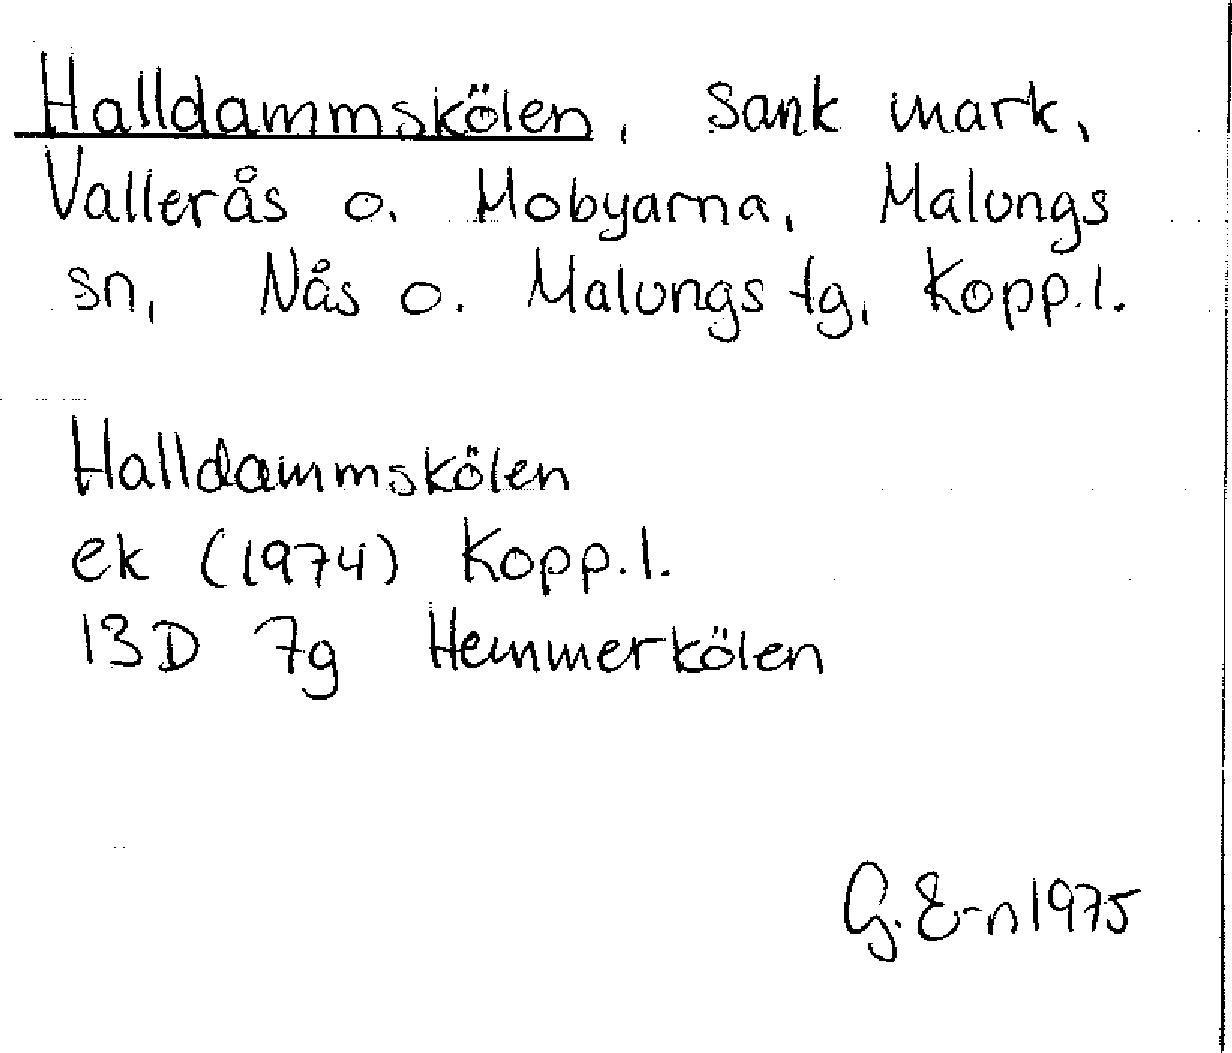 Halldammskölen, Sank mark,
Vallerås o. Mobyarna, Malungs
sn, Nås o. Malungs tg, Kopp.l.
Halldammskölen
ek (1974) Kopp.l.
13D 7g Hemmerkölen
G. E-n 1975